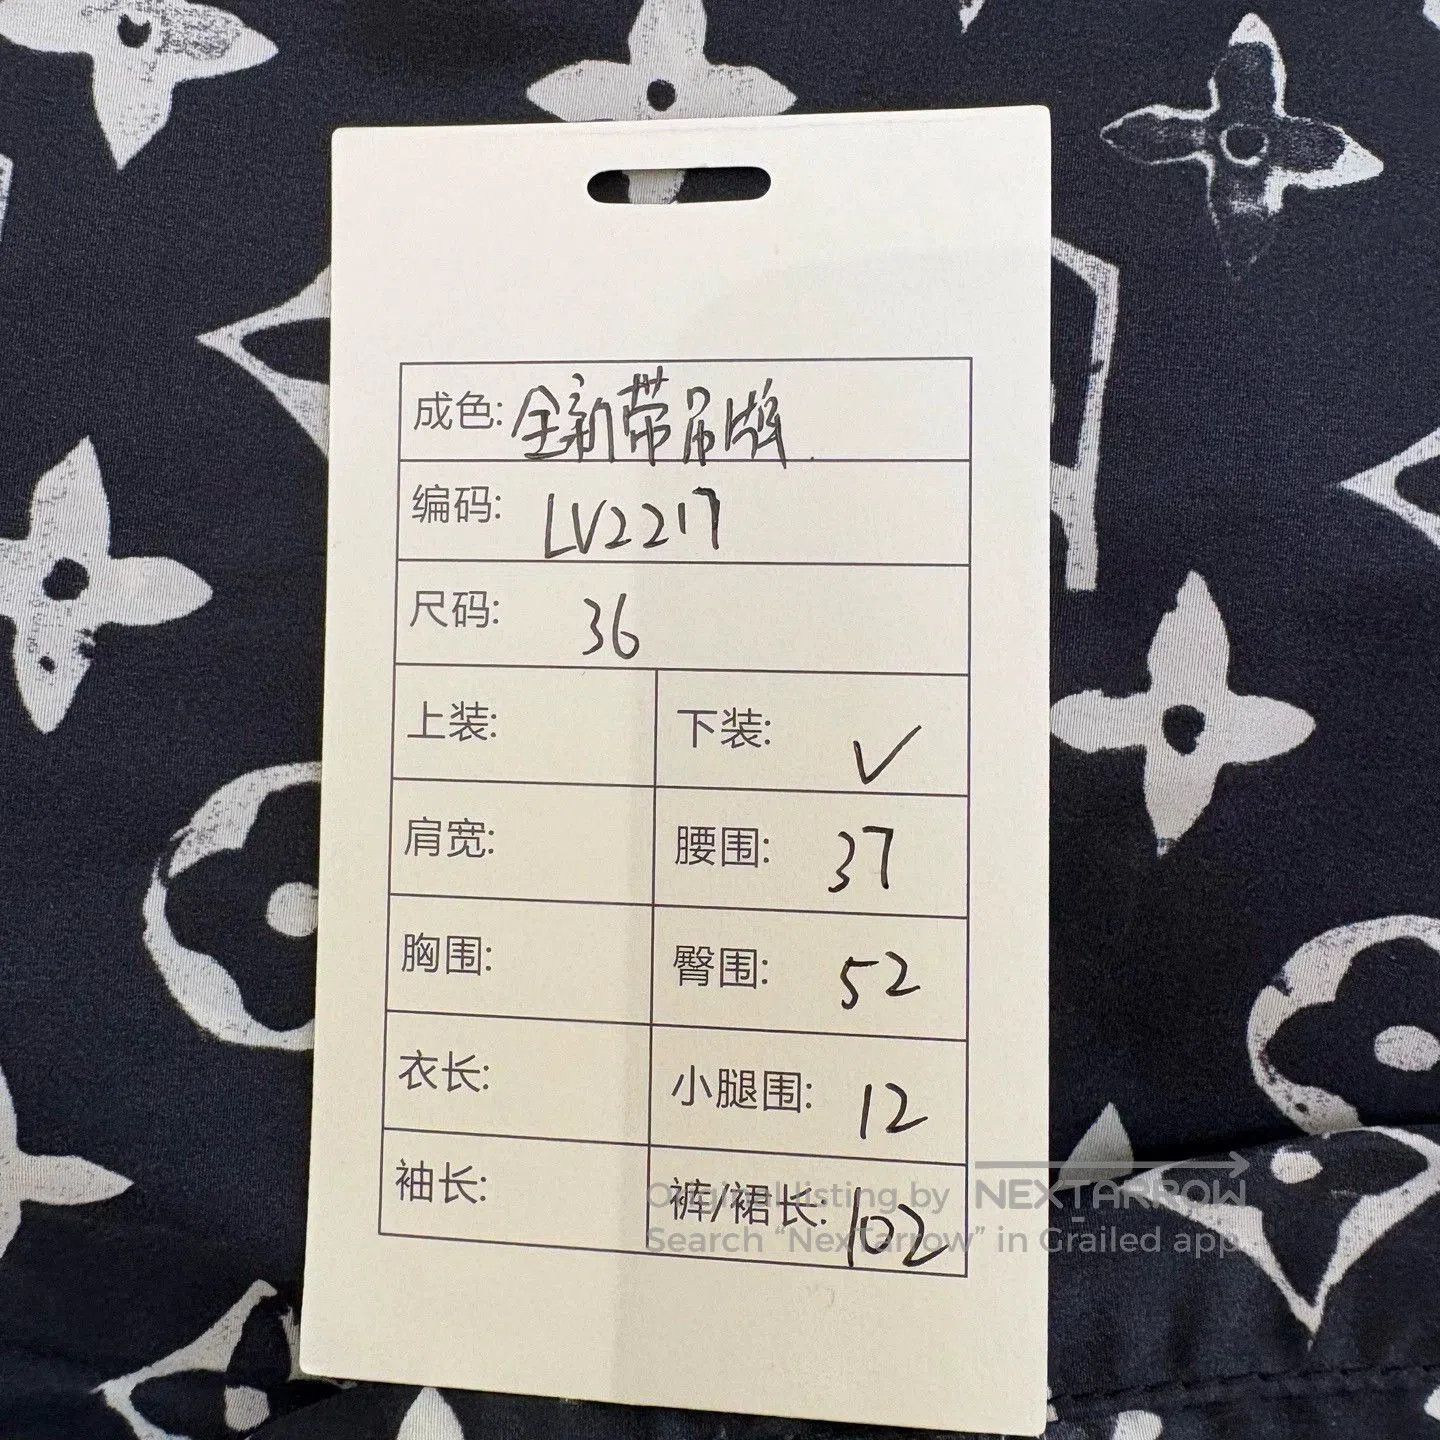 成色: 全新带吊牌
编码: LV2217
尺码: 36
上装:
下装: ✓
肩宽:
腰围: 37
胸围:
臀围: 52
衣长:
小腿围: 12
袖长:
裤/裙长: 102
Original listing by NEXTARROW
Search “NexTarrow” in Grailed app